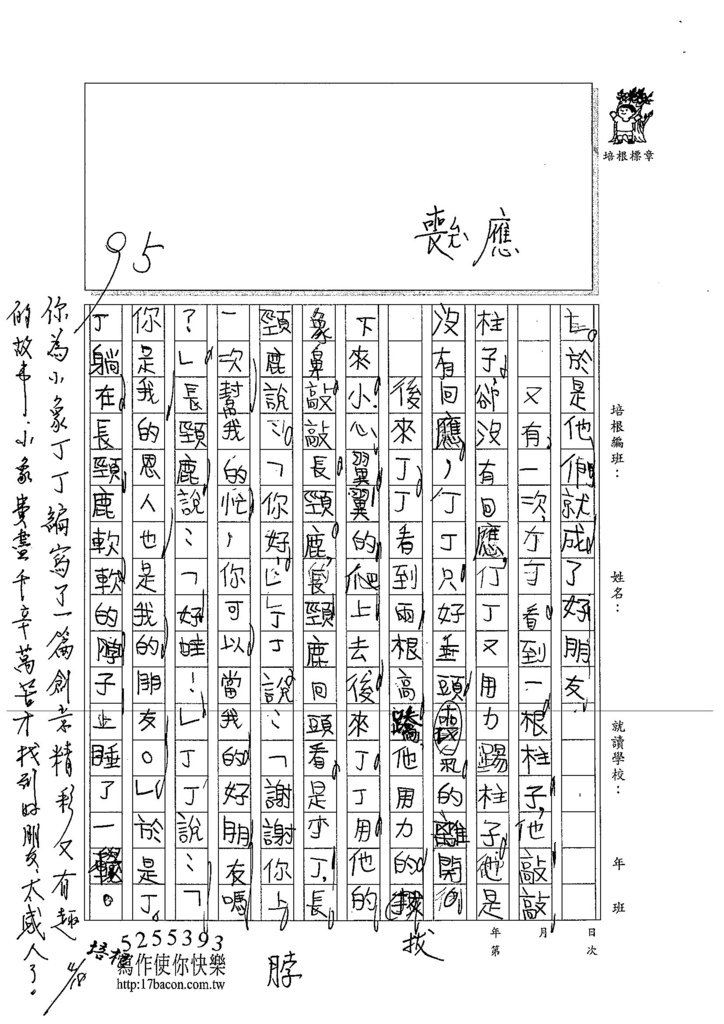 培根標章
喪 應
95
去。於是他們就成了好朋友。
又有一次,丁丁看到一根柱子,他敲敲
柱子,卻沒有回應,丁丁又用力踢柱子,他是
沒有回應,丁丁只好垂頭喪氣的離開,
後來丁丁看到兩根高蹺,他用力的
下來,小心翼翼的爬上去,後來丁丁用他的
象鼻敲敲長頸鹿,長頸鹿回頭看是丁丁,長
頸鹿說:「你好!」丁丁說:「謝謝你上
一次幫我的忙,你可以當我的好朋友嗎
?」長頸鹿說:「好哇!」丁丁說:「
你是我的恩人也是我的朋友。」於是丁
丁躺在長頸鹿軟軟的脖子上睡了一
培根編班:
姓名:
就讀學校:
年 班
年 月 日
第 次
拔
脖
你為小象丁丁編寫了一篇創意精彩又有趣
的故事,小象費盡千辛萬苦才找到好朋友,太感人了。
培根
5255393
寫作使你快樂
http:17bacon.com.tw